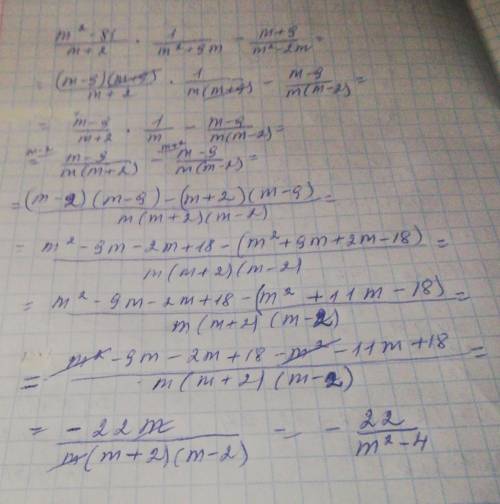 (m² - 81)/(m+2) · 1/(m²+9m) - (m+9)/(m²-2m) =
= ((m-9)(m+9))/(m+2) · 1/(m(m+9)) - (m-9)/(m(m-2)) =
= (m-9)/(m+2) · 1/m - (m-9)/(m(m-2)) =
= m-2 (m-9)/(m(m+2)) - m+2 (m-9)/(m(m-2)) =
= ((m-2)(m-9) - (m+2)(m-9))/(m(m+2)(m-2)) =
= (m² - 9m - 2m + 18 - (m² + 9m + 2m - 18))/(m(m+2)(m-2)) =
= (m² - 9m - 2m + 18 - (m² + 11m - 18))/(m(m+2)(m-2)) =
= (m² - 9m - 2m + 18 - m² - 11m + 18)/(m(m+2)(m-2)) =
= (-22m)/(m(m+2)(m-2)) = - 22/(m²-4)